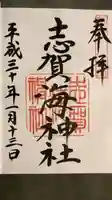 奉拝
志賀海神社
平成三十年一月十三日